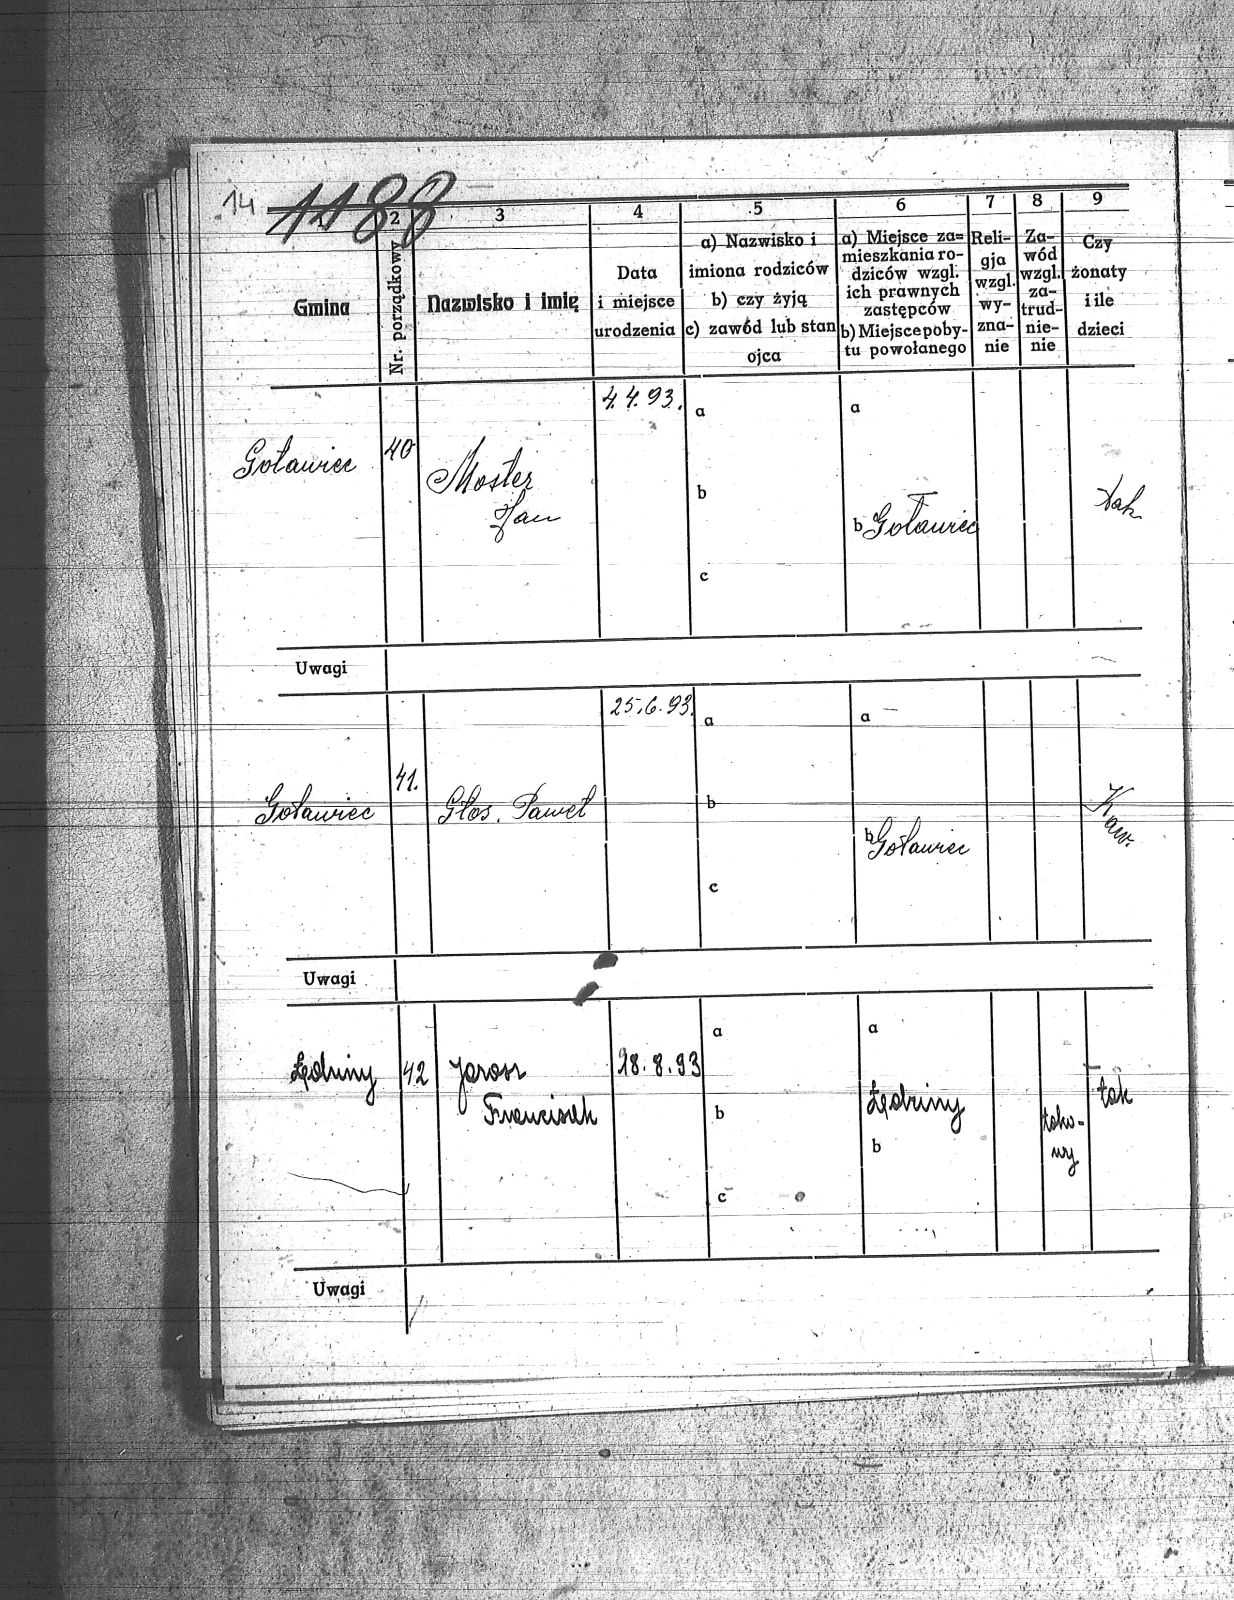 14
1188
2
3
4
5
6
7
8
9
Gmina
Nr. porządkowy
Nazwisko i imię
Data
i miejsce
urodzenia
a) Nazwisko i
imiona rodziców
b) czy żyją
c) zawód lub stan
ojca
a) Miejsce za=
mieszkania ro-
dziców wzgl.
ich prawnych
zastępców
b) Miejsce poby-
tu powołanego
Reli-
gja
wzgl.
wy-
zna-
nie
Za-
wód
wzgl.
za-
trud-
nie-
nie
Czy
żonaty
i ile
dzieci
Goławiec
40
Moster
Jan
4.4.93.
a
b
c
a
b Goławiec
tak
Uwagi
Goławiec
41.
Głos. Paweł
25.6.93.
a
b
c
a
b Goławiec
Kaw.
Uwagi
Lędziny
42
Jarosz
Franciszek
28.8.93
a
b
c
a
Lędziny
b
tak
Uwagi